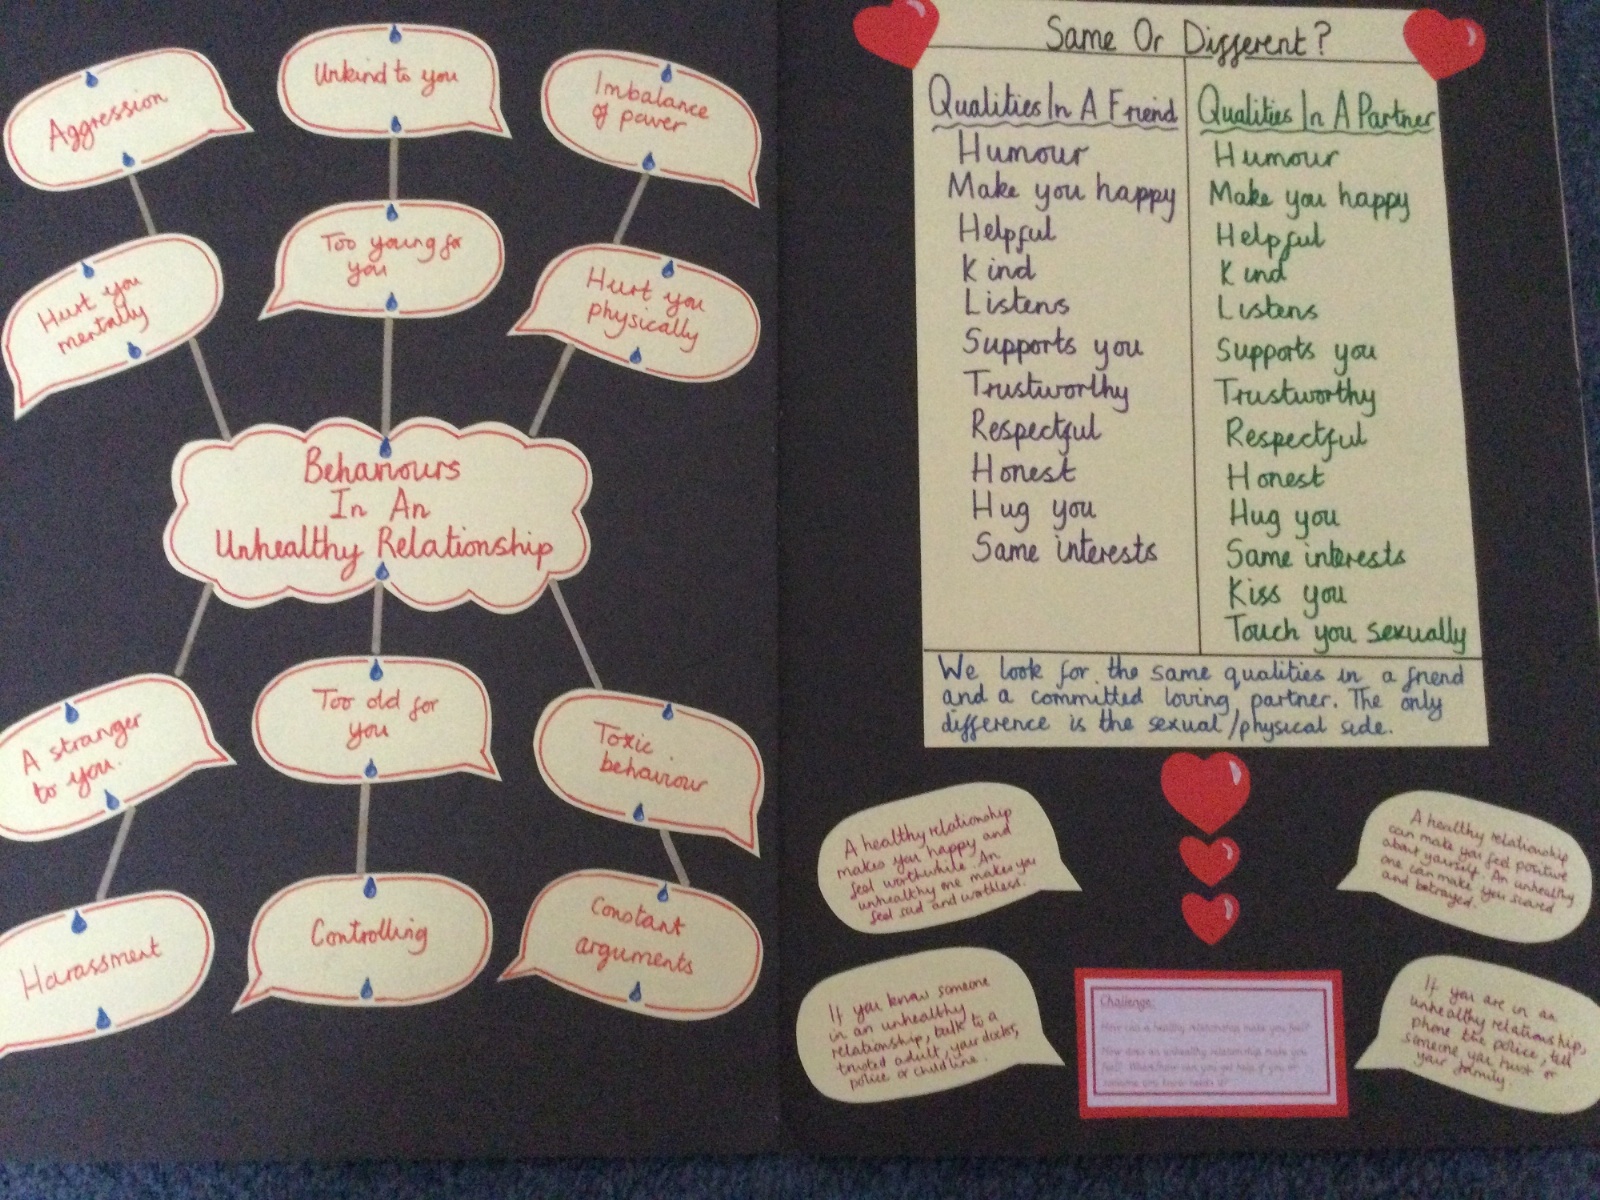 Aggression
Unkind to you
Imbalance
of power
Hurt you
mentally
Too young for
you
Hurt you
physically
Behaviours
In An
Unhealthy Relationship
A stranger
to you.
Too old for
you
Toxic
behaviour
Harassment
Controlling
Constant
arguments
Same Or Different?
Qualities In A Friend
Humour
Make you happy
Helpful
Kind
Listens
Supports you
Trustworthy
Respectful
Honest
Hug you
Same interests
Qualities In A Partner
Humour
Make you happy
Helpful
Kind
Listens
Supports you
Trustworthy
Respectful
Honest
Hug you
Same interests
Kiss you
Touch you sexually
We look for the same qualities in a friend
and a committed loving partner. The only
difference is the sexual/physical side.
A healthy relationship
makes you happy and
feel worthwhile. An
unhealthy one makes you
feel sad and worthless.
A healthy relationship
can make you feel positive
about yourself. An unhealthy
one can make you scared
and betrayed.
If you know someone
in an unhealthy
relationship, talk to a
trusted adult, your doctor,
police or childline.
Challenge:
How can a healthy relationship make you feel?
How does an unhealthy relationship make you
feel? Where/how can you get help if you or
someone you know needs it?
If you are in an
unhealthy relationship,
phone the police, tell
someone you trust or
your family.